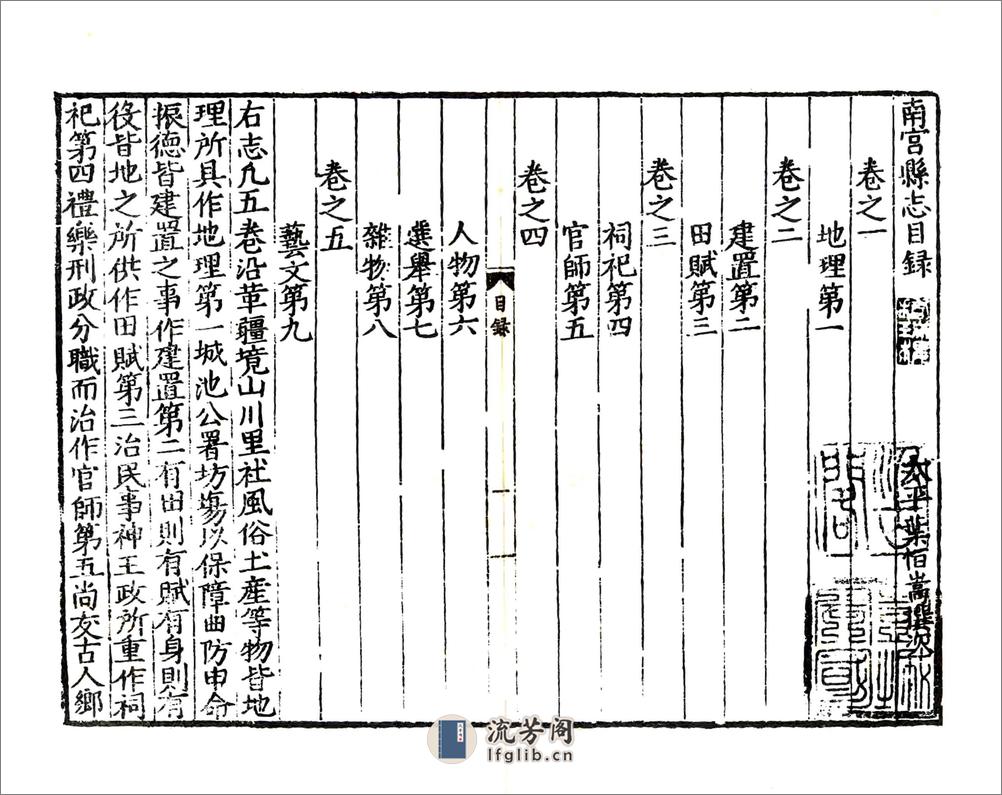 南宮縣志目錄
太平葉恒嵩撰次
卷之一
地理第一
卷之二
建置第二
田賦第三
卷之三
祠祀第四
官師第五
卷之四
目錄
一
人物第六
選舉第七
雜物第八
卷之五
藝文第九
右志凡五卷沿革疆境山川里社風俗土産等物皆地
理所具作地理第一城池公署坊塲以保障曲防申命
振德皆建置之事作建置第二有田則有賦有身則有
役皆地之所供作田賦第三治民事神王政所重作祠
祀第四禮樂刑政分職而治作官師第五尚友古人鄉
流芳阁
lfglib.cn